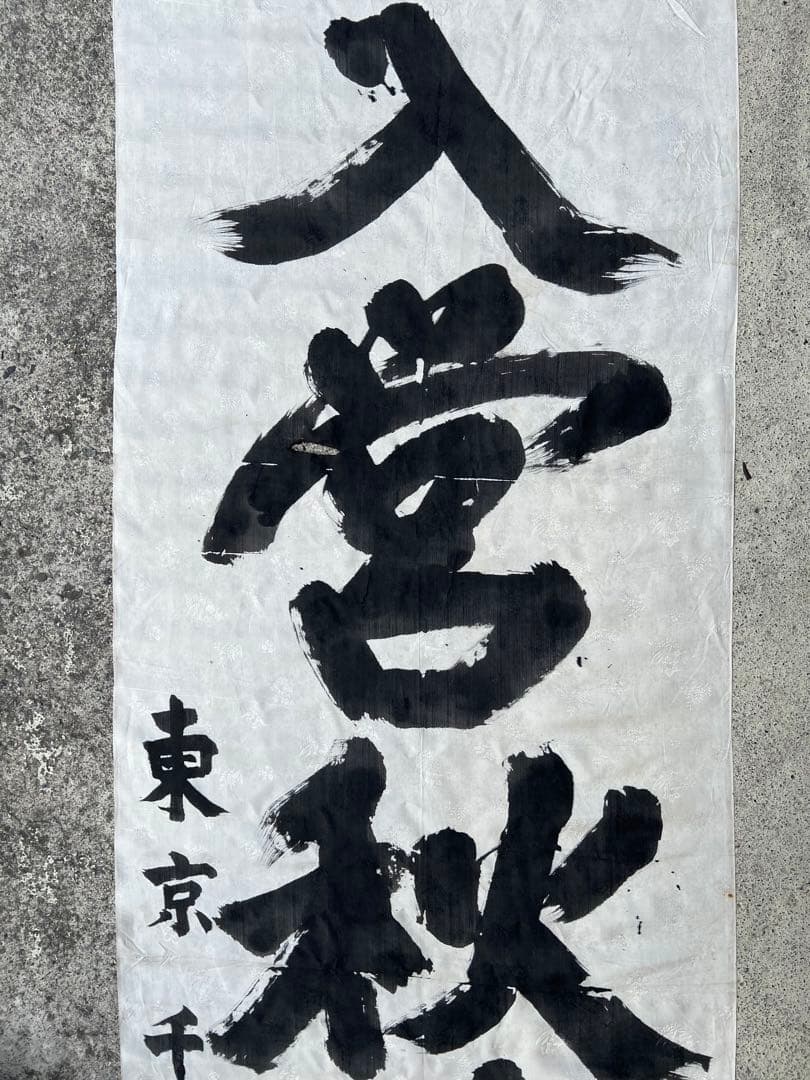 入営秋
東京千